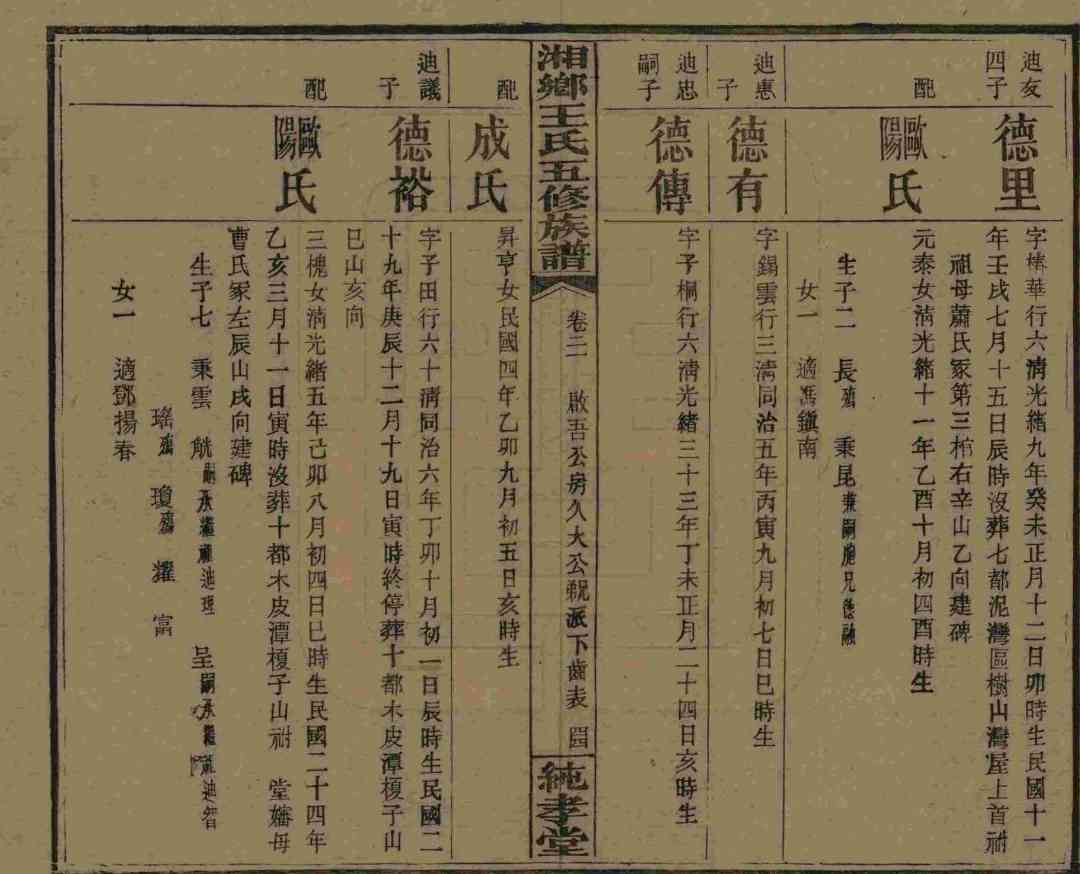 迪友四子
德里
字椿華行六清光緒九年癸未正月十二日卯時生民國十一
年壬戌七月十五日辰時沒葬七都泥灣區樹山灣屋上首祔
祖母蕭氏冢第三棺右辛山乙向建碑
配
歐陽氏
元泰女清光緒十一年乙酉十月初四酉時生
生子二 長殤 秉昆兼嗣胞兄德融
女一 適馮鎮南
迪惠子
德有
字錫雲行三清同治五年丙寅九月初七日巳時生
迪忠嗣子
德傳
字子桐行六清光緒三十三年丁未正月二十四日亥時生
湘鄉王氏五修族譜
卷二 啟吾公房久大公貺派下齒表
純孝堂
配
成氏
昇亨女民國四年乙卯九月初五日亥時生
迪議子
德裕
字子田行六十清同治六年丁卯十月初一日辰時生民國二
十九年庚辰十二月十九日寅時終停葬十都木皮潭榎子山
巳山亥向
配
歐陽氏
三槐女清光緒五年己卯八月初四日巳時生民國二十四年
乙亥三月十一日寅時沒葬十都木皮潭榎子山祔 堂嬸母
曹氏冢左辰山戌向建碑
生子七 秉雲 觥嗣承繼祖迪理 呈嗣承繼祖迪智
瑤殤 瓊殤 耀 富
女一 適鄧揚春